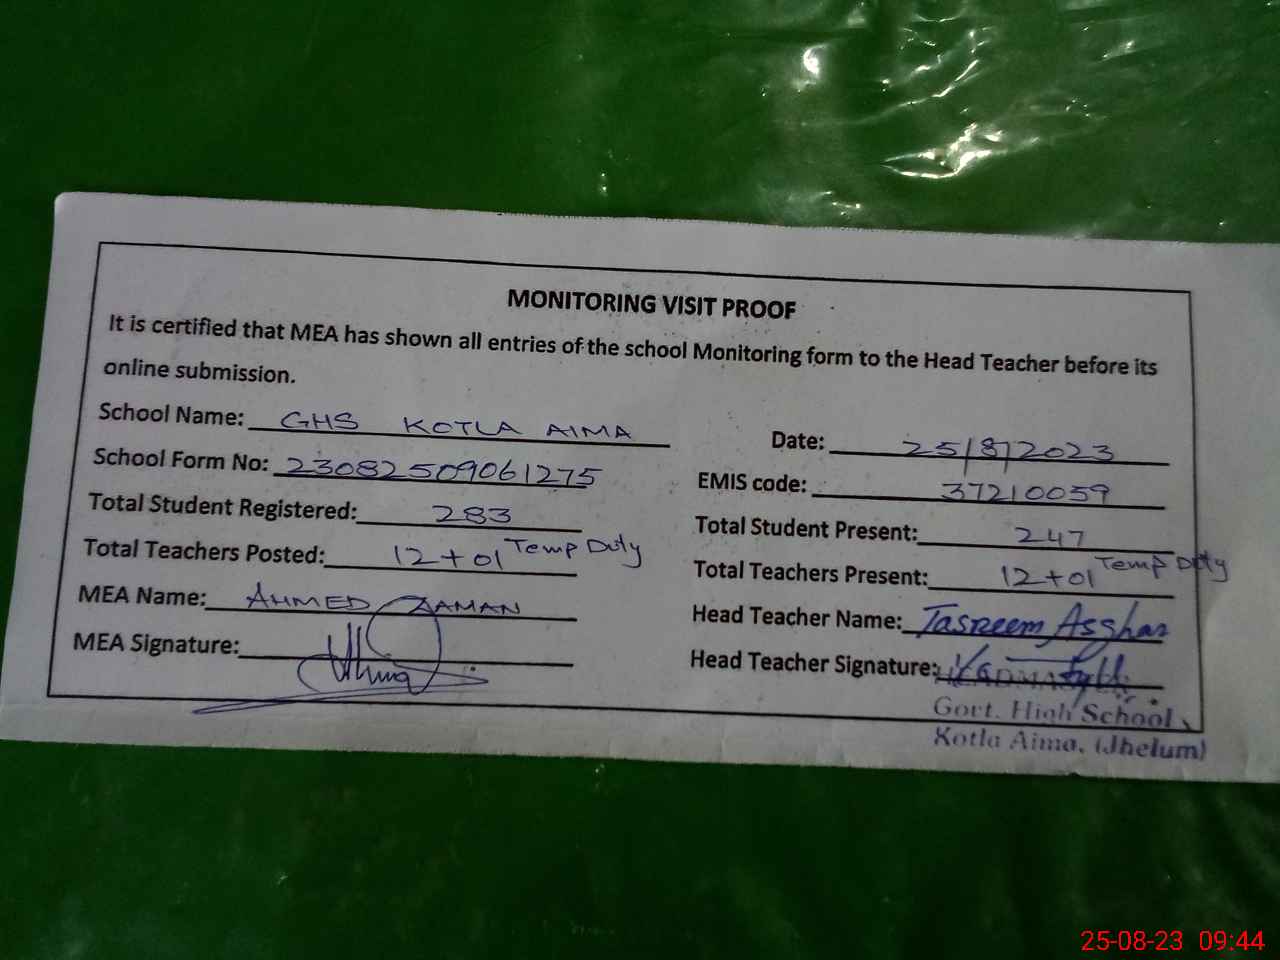 MONITORING VISIT PROOF
It is certified that MEA has shown all entries of the school Monitoring form to the Head Teacher before its
online submission.
School Name: GHS KOTLA AIMA Date: 25/8/2023
School Form No: 23082509061275 EMIS code: 37210059
Total Student Registered: 283 Total Student Present: 247
Total Teachers Posted: 12+01 Temp Duty Total Teachers Present: 12+01 Temp Duty
MEA Name: AHMED ZAMAN Head Teacher Name: Tasneem Asghar
MEA Signature: Head Teacher Signature:
HEADMASTER
Govt. High School
Kotla Aima, (Jhelum)
25-08-23 09:44